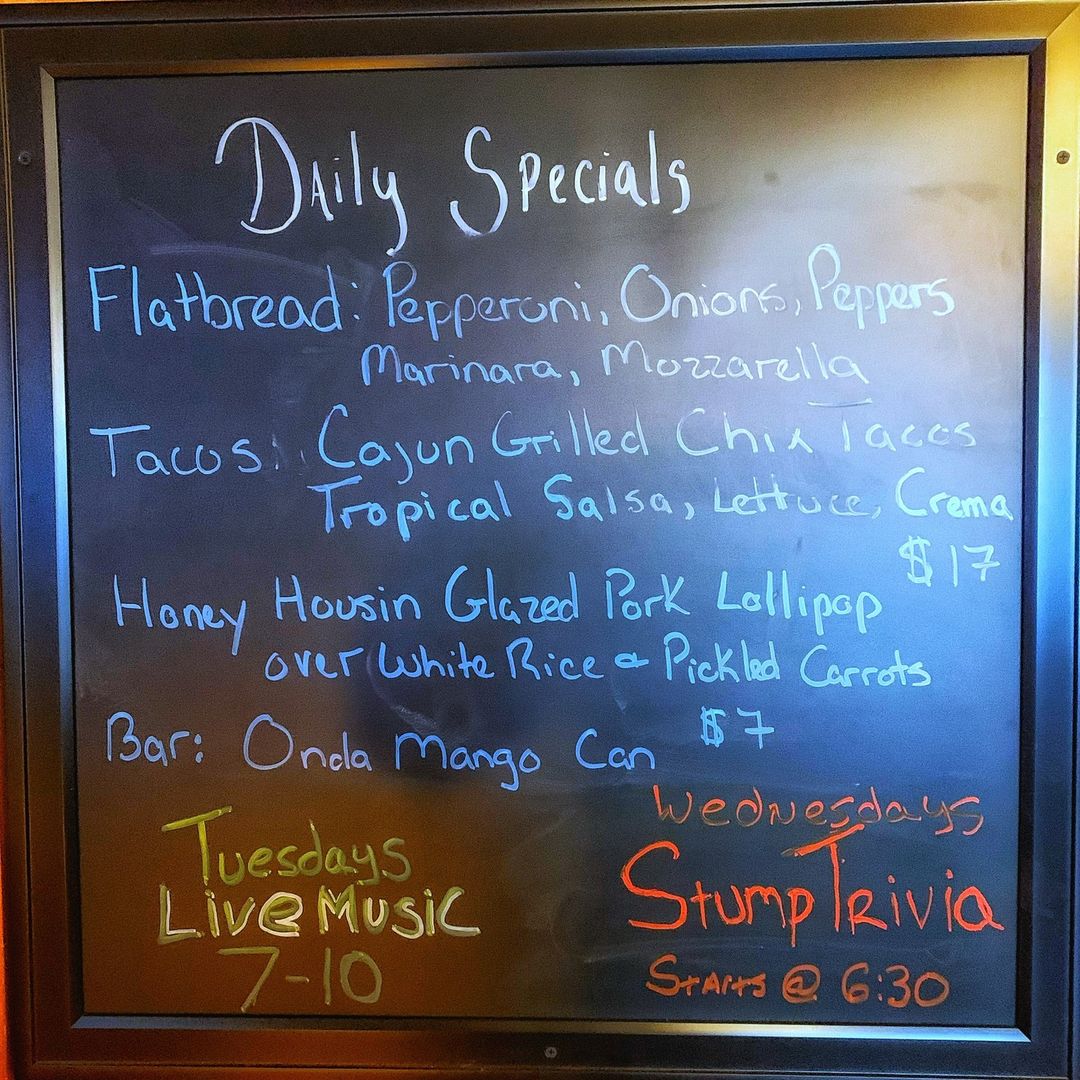 Daily Specials
Flatbread: Pepperoni, Onions, Peppers
Marinara, Mozzarella
Tacos: Cajun Grilled Chix Tacos
Tropical Salsa, Lettuce, Crema
$17
Honey Housin Glazed Pork Lollipop
over White Rice & Pickled Carrots
$7
Bar: Onda Mango Can
Tuesdays
Live Music
7-10
Wednesdays
Stump Trivia
Starts @ 6:30